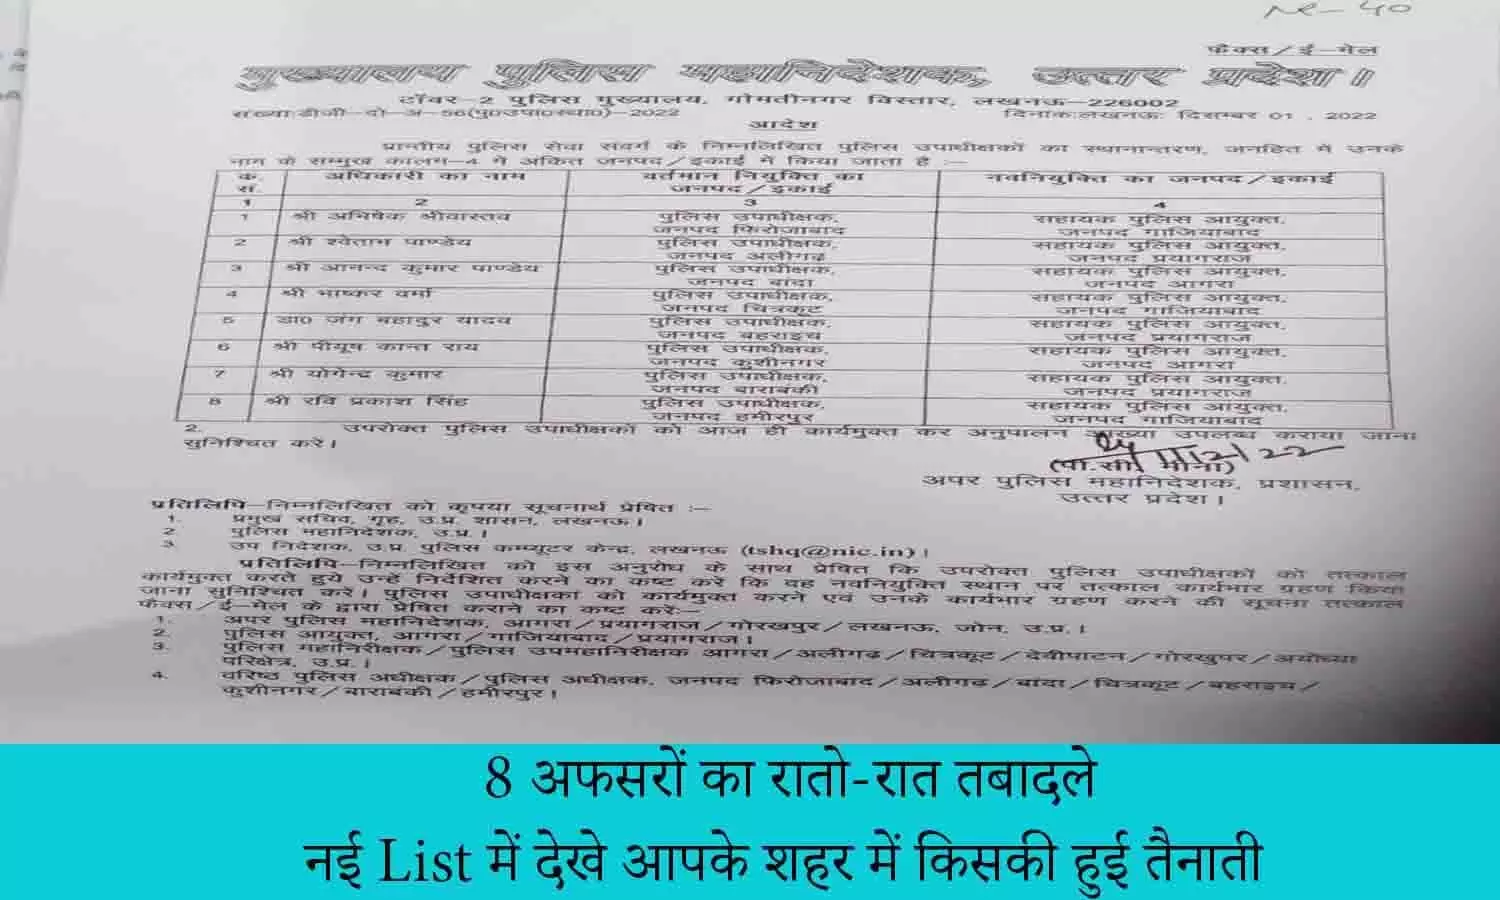 फैक्स/ई-मेल
मुख्यालय पुलिस महानिदेशक, उत्तर प्रदेश।
टॉवर-2 पुलिस मुख्यालय, गोमतीनगर विस्तार, लखनऊ-226002
संख्या:डीजी-दो-अ-56(पु0उपा0स्था0)-2022 दिनांक:लखनऊ: दिसम्बर 01 , 2022
आदेश
प्रान्तीय पुलिस सेवा संवर्ग के निम्नलिखित पुलिस उपाधीक्षकों का स्थानान्तरण, जनहित में उनके
नाम के सम्मुख कालम-4 में अंकित जनपद/इकाई में किया जाता है :-
क. सं. अधिकारी का नाम वर्तमान नियुक्ति का जनपद/इकाई नवनियुक्ति का जनपद/इकाई
1 2 3 4
1 श्री अभिषेक श्रीवास्तव पुलिस उपाधीक्षक, जनपद फिरोजाबाद सहायक पुलिस आयुक्त, जनपद गाजियाबाद
2 श्री श्वेताभ पाण्डेय पुलिस उपाधीक्षक, जनपद अलीगढ़ सहायक पुलिस आयुक्त, जनपद प्रयागराज
3 श्री आनन्द कुमार पाण्डेय पुलिस उपाधीक्षक, जनपद बांदा सहायक पुलिस आयुक्त, जनपद आगरा
4 श्री भाष्कर वर्मा पुलिस उपाधीक्षक, जनपद चित्रकूट सहायक पुलिस आयुक्त, जनपद गाजियाबाद
5 डा0 जंग बहादुर यादव पुलिस उपाधीक्षक, जनपद बहराइच सहायक पुलिस आयुक्त, जनपद प्रयागराज
6 श्री पीयूष कान्त राय पुलिस उपाधीक्षक, जनपद कुशीनगर सहायक पुलिस आयुक्त, जनपद आगरा
7 श्री योगेन्द्र कुमार पुलिस उपाधीक्षक, जनपद बाराबंकी सहायक पुलिस आयुक्त, जनपद प्रयागराज
8 श्री रवि प्रकाश सिंह पुलिस उपाधीक्षक, जनपद हमीरपुर सहायक पुलिस आयुक्त, जनपद गाजियाबाद
2. उपरोक्त पुलिस उपाधीक्षकों को आज ही कार्यमुक्त कर अनुपालन आख्या उपलब्ध कराया जाना
सुनिश्चित करें।
(पी.सी. मीना)
अपर पुलिस महानिदेशक, प्रशासन,
उत्तर प्रदेश।
प्रतिलिपि-निम्नलिखित को कृपया सूचनार्थ प्रेषित :-
1. प्रमुख सचिव, गृह, उ.प्र. शासन, लखनऊ।
2 पुलिस महानिदेशक, उ.प्र.।
3 उप निदेशक, उ.प्र. पुलिस कम्प्यूटर केन्द्र, लखनऊ (tshq@nic.in)।
प्रतिलिपि-निम्नलिखित को इस अनुरोध के साथ प्रेषित कि उपरोक्त पुलिस उपाधीक्षकों को तत्काल
कार्यमुक्त करते हुये उन्हें निर्देशित करने का कष्ट करें कि वह नवनियुक्ति स्थान पर तत्काल कार्यभार ग्रहण किया
जाना सुनिश्चित करें। पुलिस उपाधीक्षकों को कार्यमुक्त करने एवं उनके कार्यभार ग्रहण करने की सूचना तत्काल
फैक्स/ई-मेल के द्वारा प्रेषित कराने का कष्ट करें:-
1. अपर पुलिस महानिदेशक, आगरा/प्रयागराज/गोरखपुर/लखनऊ, जोन, उ.प्र.।
2. पुलिस आयुक्त, आगरा/गाजियाबाद/प्रयागराज।
3. पुलिस महानिरीक्षक/पुलिस उपमहानिरीक्षक आगरा/अलीगढ़/चित्रकूट/देवीपाटन/गोरखुपर/अयोध्या
परिक्षेत्र, उ.प्र.।
4. वरिष्ठ पुलिस अधीक्षक/पुलिस अधीक्षक, जनपद फिरोजाबाद/अलीगढ़/बांदा/चित्रकूट/बहराइच/
कुशीनगर/बाराबंकी/हमीरपुर।
8 अफसरों का रातो-रात तबादले
नई List में देखे आपके शहर में किसकी हुई तैनाती